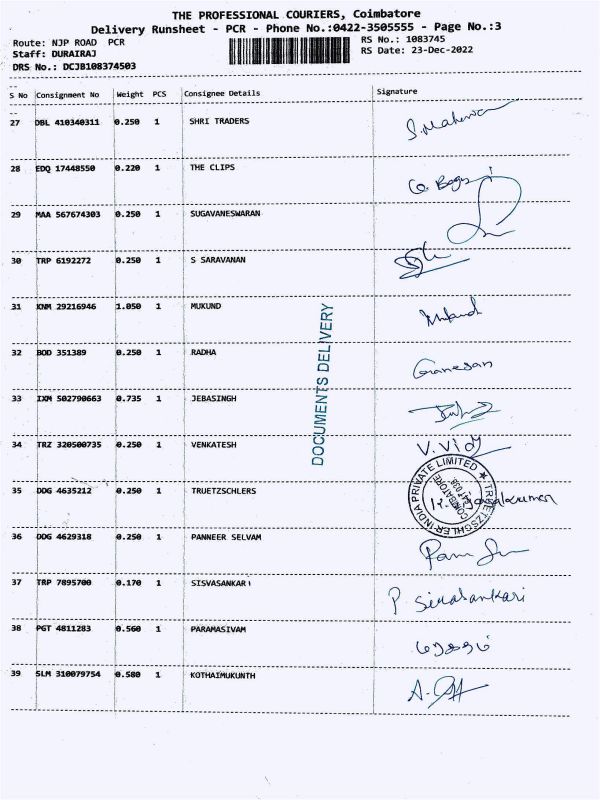 THE PROFESSIONAL COURIERS, Coimbatore
Delivery Runsheet - PCR - Phone No.:0422-3505555 - Page No.:3
Route: NJP ROAD PCR RS No.: 1083745
Staff: DURAIRAJ RS Date: 23-Dec-2022
DRS No.: DCJB108374503
S No Consignment No Weight PCS Consignee Details Signature
27 DBL 410340311 0.250 1 SHRI TRADERS
28 EDQ 17448550 0.220 1 THE CLIPS
29 MAA 567674303 0.250 1 SUGAVANESWARAN
30 TRP 6192272 0.250 1 S SARAVANAN
31 KNM 29216946 1.050 1 MUKUND Mukund
32 BOD 351389 0.250 1 RADHA Ganesan
33 IXM 502790663 0.735 1 JEBASINGH
34 TRZ 320500735 0.250 1 VENKATESH
35 DDG 4635212 0.250 1 TRUETZSCHLERS
36 DDG 4629318 0.250 1 PANNEER SELVAM
37 TRP 7895700 0.170 1 SISVASANKARI P Sivasankari
38 PGT 4811283 0.560 1 PARAMASIVAM
39 SLM 310079754 0.580 1 KOTHAIMUKUNTH
DOCUMENTS DELIVERY
TRUETZSCHLER INDIA PRIVATE LIMITED
COIMBATORE